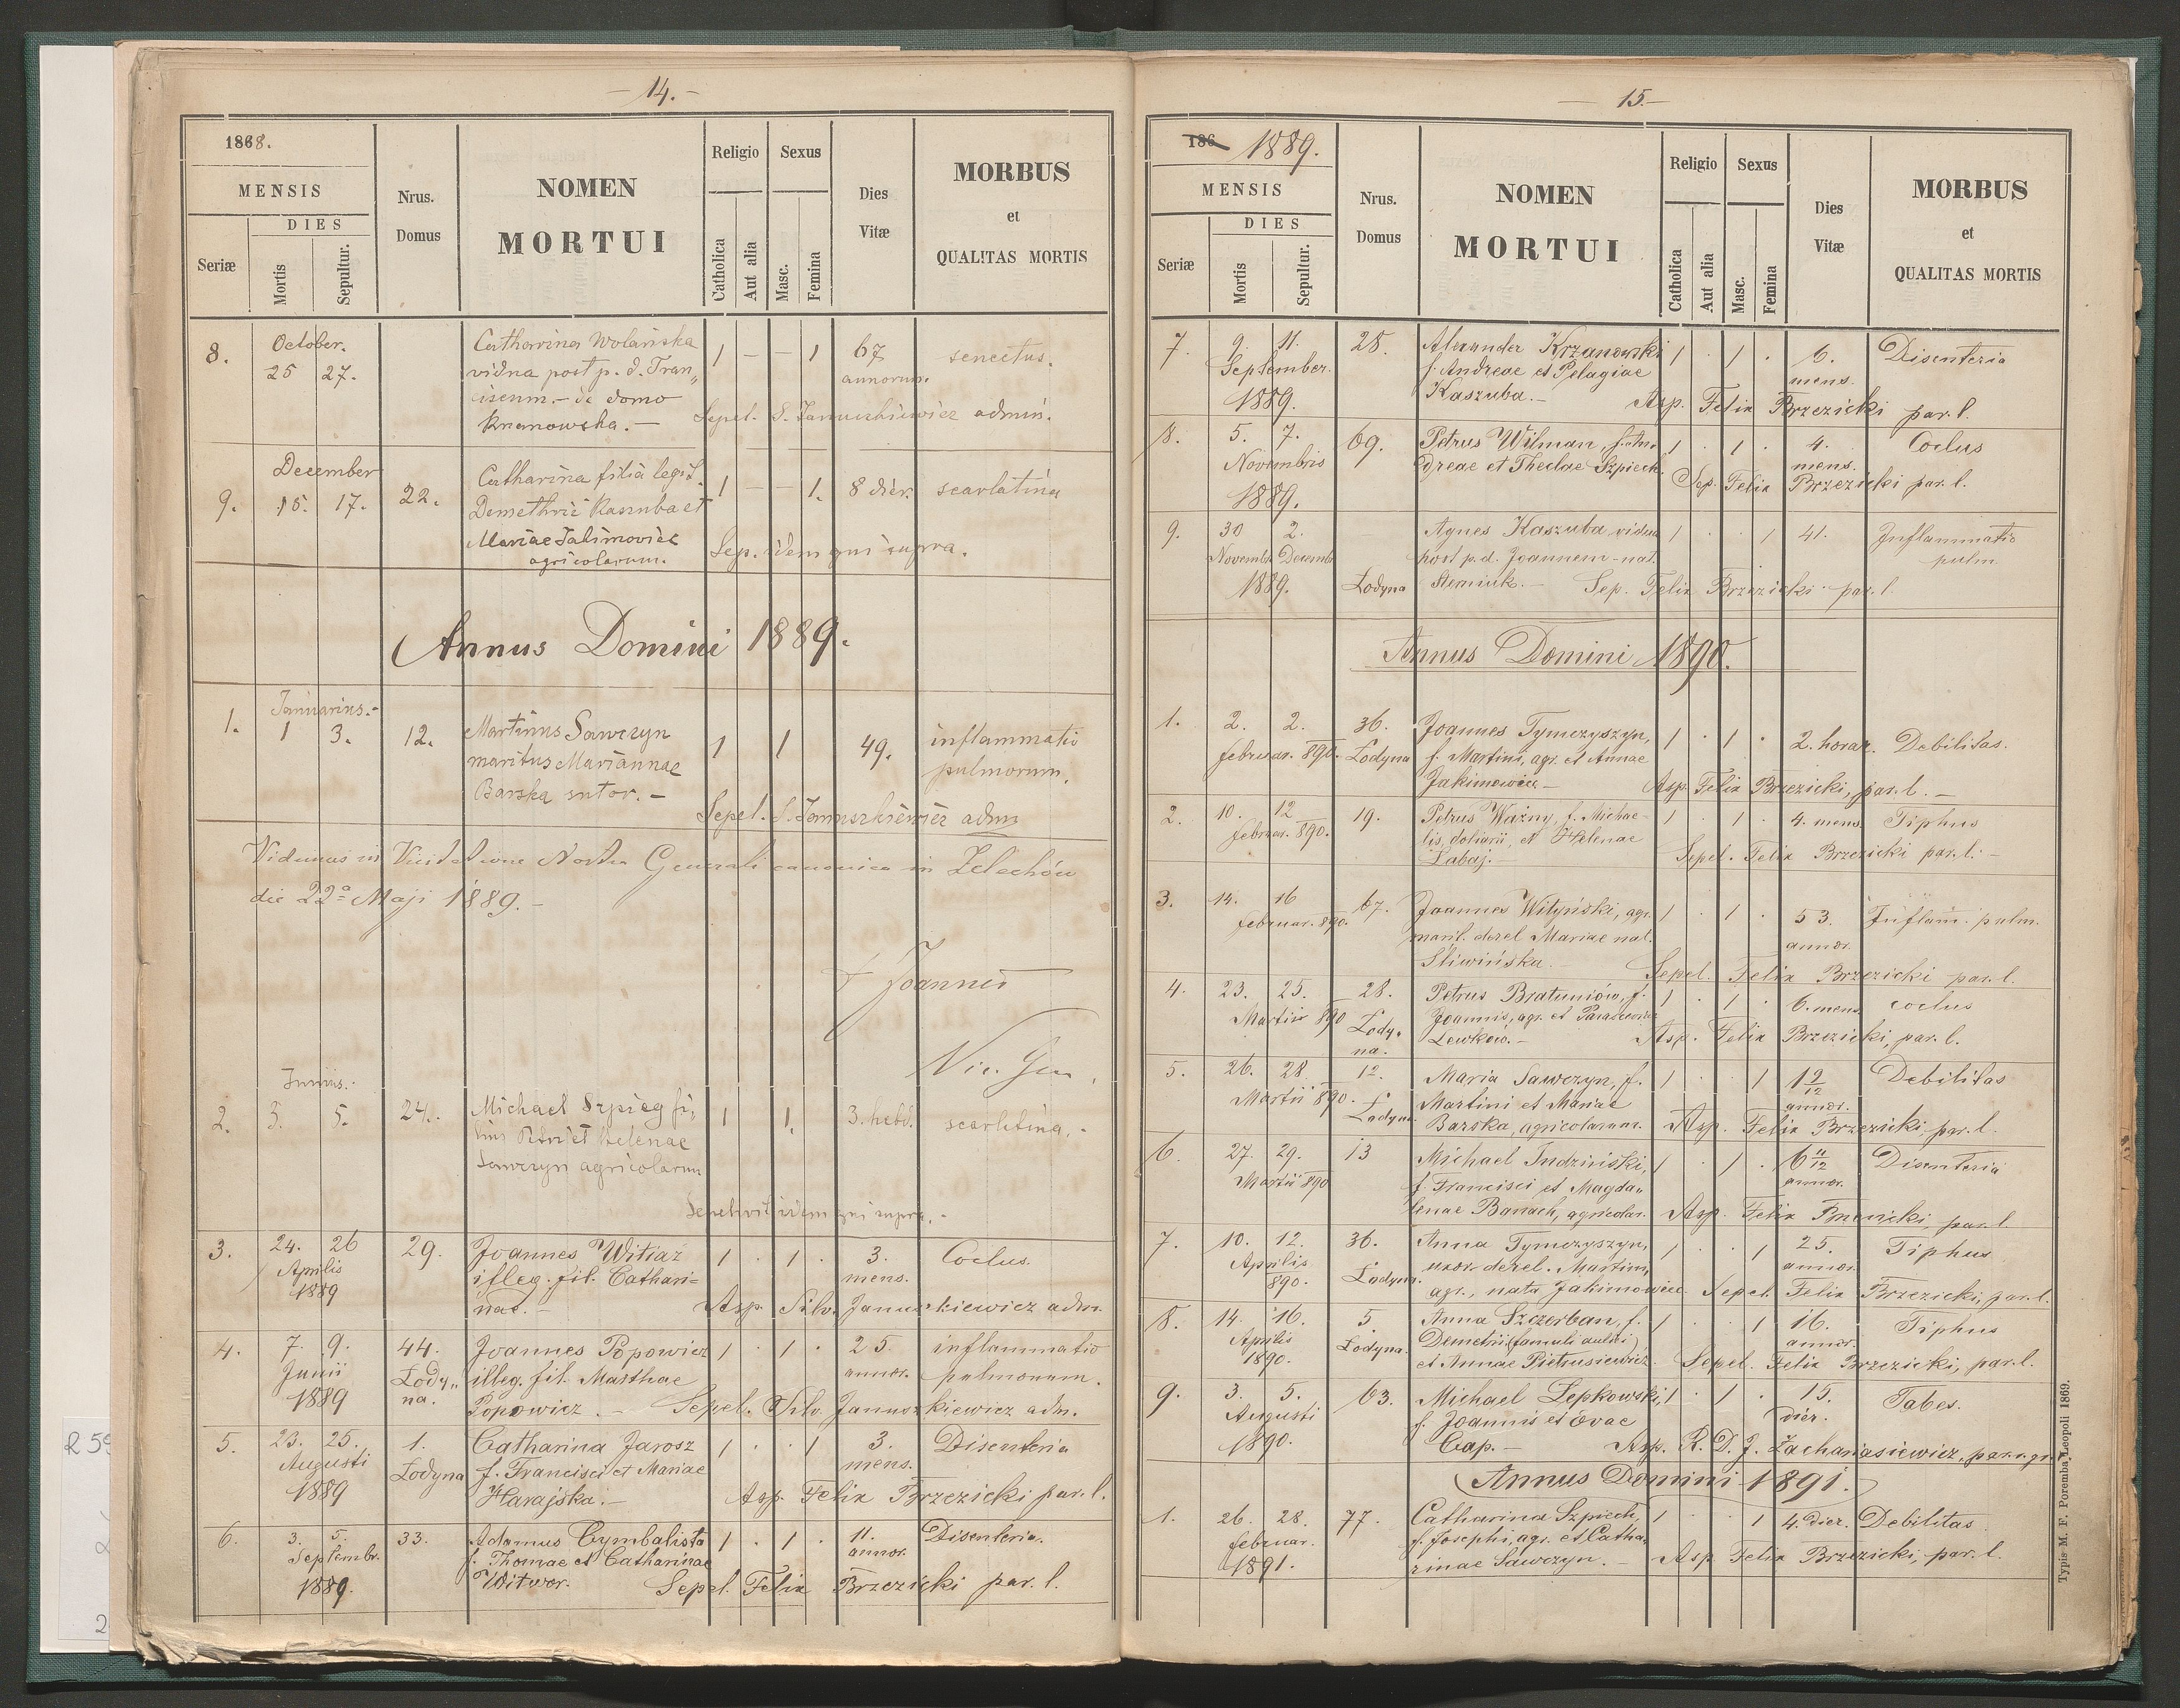 14.
1868.
MENSIS
DIES
Seriæ
Mortis
Sepultur.
Nrus. Domus
NOMEN
MORTUI
Religio
Catholica
Aut alia
Sexus
Masc.
Femina
Dies Vitæ
MORBUS
et
QUALITAS MORTIS
8. October. 25 27. Catharina Wolańska 1 — — 1 67 annorum. senectus.
vidua post p. d. Fran„
ciscum. – de domo
Sepel. S. Januszkiewicz admin.
9. December 15. 17. 22. Catharina filia legit. 1 — — 1. 8 dier. scarlatina
Demethrii Kaszuba et
Mariae Jakimowicz
agricolarum.
Sep. idem qui supra.
Annus Domini 1889.
1. Januarius. 1 3. 12. Martinus Sawczyn 1 1 49. inflammatio
maritus Mariannae pulmorum.
Barska sutor. –
Sepel. S. Januszkiewicz adm
Vidimus in Visitatione Nostra Generali canonica in Żelechów
die 22ª Maji 1889. –
† Joannes
Vic. Gen.
2. Junius. 3. 5. 24. Michael Szpieg fi„ 1 1. 3. hebd. scarlatina. –
lius Petri et Helenae
Sawczyn agricolarum
Sepelivit idem qui supra. –
3. 24. 26 Aprilis 1889 29. Joannes Witiaz 1 . 1 . 3. mens. Coclus.
illeg. fil. Cathari=
nae. –
Asp. Silv. Januszkiewicz adm.
4. 7. 9. Junii 1889 44. Lody„ na. Joannes Popowicz 1 . 1 . 25. annor. inflammatio
illeg. fil. Marthae pulmonum.
Popowicz. – Sepel. Silv. Januszkiewicz adm.
5. 23. 25. Augusti 1889 1. Lodyna Catharina Jarosz 1 . . 1 3. mens. Disenteria
f. Francisci et Mariae
Harajska. – Asp. Felix Brzezicki par. l.
6. 3. 5. Septembr. 1889. 33. Adamus Cymbalista 1 . 1 . 11. annor. Disenteria.
f. Thomae et Catharinae
Witwor. Sepel. Felix Brzezicki par. l.
15.
186 1889.
MENSIS
DIES
Seriæ
Mortis
Sepultur.
Nrus. Domus
NOMEN
MORTUI
Religio
Catholica
Aut alia
Sexus
Masc.
Femina
Dies Vitæ
MORBUS
et
QUALITAS MORTIS
7. 9. 11. September. 1889. 28. Alexander Krzanowski 1 . 1 . 6. mens. Disenteria
f. Andreae et Pelagiae
Kaszuba. – Asp. Felix Brzezicki par. l.
8. 5. 7. Novembris 1889. 69. Petrus Wilman, f. An„ 1 . 1 . 4. mens. Coclus
dreae et Theclae Szpiech. Sep. Felix Brzezicki par. l.
9. 30 2. Novembr. Decembr. 1889. Lodyna Agnes Kaszuba vidua 1 . . 1 41. Inflammatio
post p. d. Joannem – nat. pulm.
Sterniuk. – Sep. Felix Brzezicki par. l.
Annus Domini 1890.
1. 2. 2. februar. 890. 36. Lodyna Joannes Tymczyszyn, 1 . 1 . 2. horar. Debilitas.
f. Martini, agr. et Annae
Jakimowicz – Asp. Felix Brzezicki, par. l. –
2. 10. 12 februar. 890. 19. Petrus Ważny, f. Michae- 1 . 1 . 4. mens. Tiphus
lis, doliarii, et Helenae
Łabaj. – Sepel. Felix Brzezicki par. l. –
3. 14. 16 februar. 890. 67. Joannes Wityński, agr. 1 . 1 . 53. annor. Inflam. pulm.
marit. derel. Mariae nat.
Śliwińska. Sepel. Felix Brzezicki par. l.
4. 23. 25. Martii 890 28. Lody„ na. Petrus Bratuniów, f. 1 . 1 . 6. mens. coclus
Joannis, agr. et Parasceviae
Lewków. – Asp. Felix Brzezicki, par. l.
5. 26. 28 Martii 890. 12. Lodyna. Maria Sawczyn, f. 1 . . 1 1 2/12 annor. Debilitas
Martini et Mariae
Barska, agricolarum. Asp. Felix Brzezicki, par. l.
6. 27. 29. Martii 890 13 Michael Indziński, 1 . 1 . 6 11/12 annor. Disenteria
f. Francisci et Magda„
lenae Banach, agricolar. Asp. Felix Brzezicki, par. l.
7. 10. 12. Aprilis 890. 36. Lodyna. Anna Tymczyszyn, 1 . . 1 25. annor. Tiphus
uxor derel. Martini,
agr., nata Jakimowicz. Sepel. Felix Brzezicki, par. l.
8. 14. 16. Aprilis 1890. 5. Lodyna. Anna Szczerban, f. 1 . . 1 16. annor. Tiphus
Demetrii (famuli aulici)
et Annae Pietrusiewicz. Sepel. Felix Brzezicki, par. l.
9. 3. 5. Augusti 1890. 63. Michael Lepkowski, 1 . 1 . 15. dier. Tabes.
f. Joannis et Evae
Cap. – Asp. R. D. J. Zachariasiewicz, par. r. gr.
Annus Domini 1891.
1. 26. 28. februar. 1891. 77. Catharina Szpiech, 1 . . 1 4. dier. Debilitas
f. Josephi, agr. et Catha„
rinae Sawczyn. – Asp. Felix Brzezicki, par. l.
Typis M. F. Poremba, Leopoli 1869.